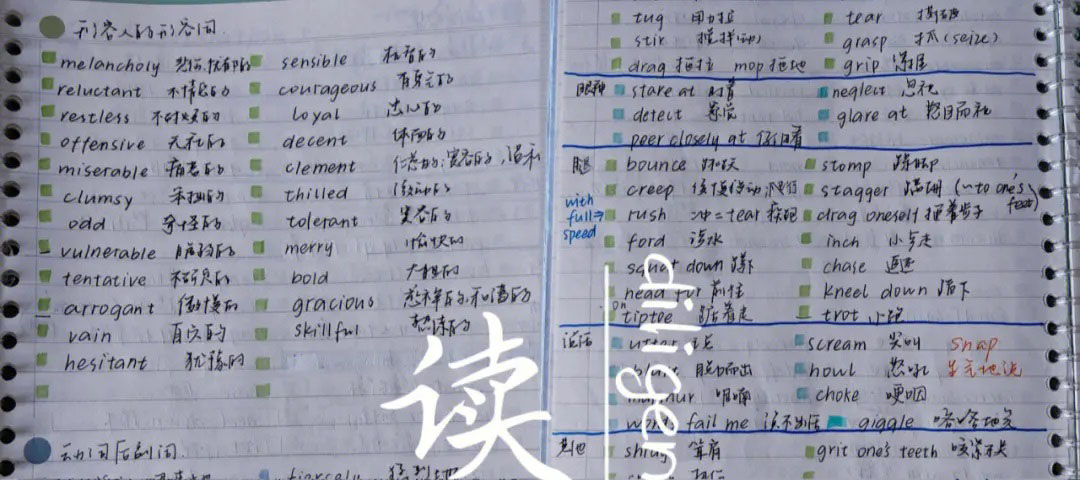 形容人的形容词
melancholy 悲伤,忧郁的 sensible 机智的
reluctant 不情愿的 courageous 有勇气的
restless 不耐烦的 loyal 忠心的
offensive 无礼的 decent 体面的
miserable 痛苦的 clement 仁慈的;宽容的,温和
clumsy 笨拙的 thilled 激动的
odd 奇怪的 tolerant 宽容的
vulnerable 脆弱的 merry 愉快的
tentative 大胆的
arrogant 傲慢的 gracious 慈祥的,和蔼的
vain 自负的 skillful 熟练的
hesitant 犹豫的
动词后副词
fiercely 猛烈地
tug 用力拉 tear 撕破
stir 搅拌(动) grasp 抓(seize)
drag 拖拉 mop 拖地 grip 紧握
眼神 stare at 盯着 neglect 忽视
detect 察觉 glare at 怒目而视
peer closely at 仔细看
腿 bounce 跳跃 stomp 跺脚
creep 缓慢移动 stagger 蹒跚 (~to one's feet)
with full speed → rush 冲 = tear 疾跑 drag oneself 拖着步子
ford 涉水 inch 小步走
squat down 蹲 chase 追逐
head for 前往 kneel down 跪下
on tiptoe 踮着走 trot 小跑
说话 utter scream 尖叫 snap
blurt 脱口而出 howl 怒吼 生气地说
murmur 呢喃 choke 哽咽
words fail me 说不出话 giggle 咯咯地笑
其他 shrug 耸肩 grit one's teeth 咬紧牙关
读
diligen